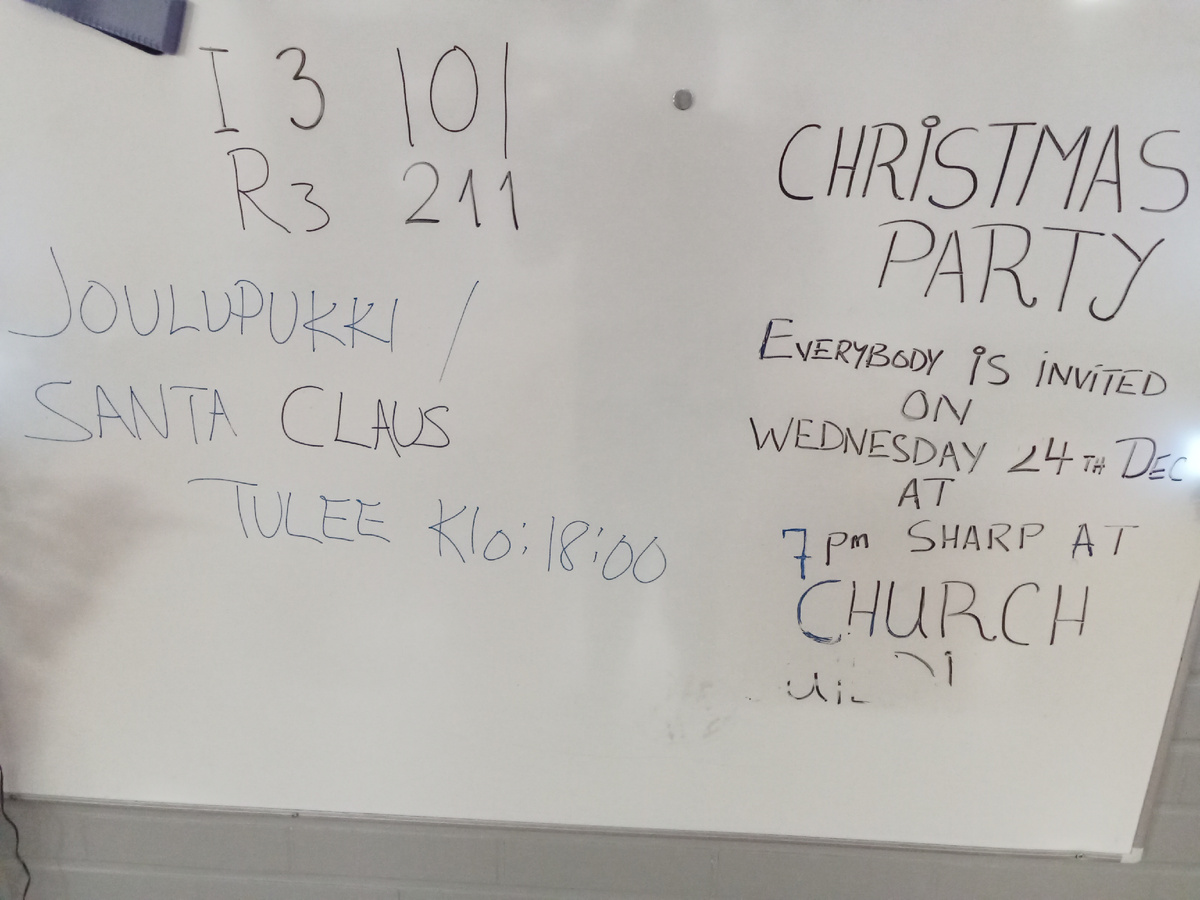 I 3 101
R3 211
JOULUPUKKI /
SANTA CLAUS
TULEE Klo: 18:00
CHRiSTMAS
PARTY
EVERYBODY iS iNViTED
ON
WEDNESDAY 24TH DEC
AT
7 pm SHARP AT
CHURCH